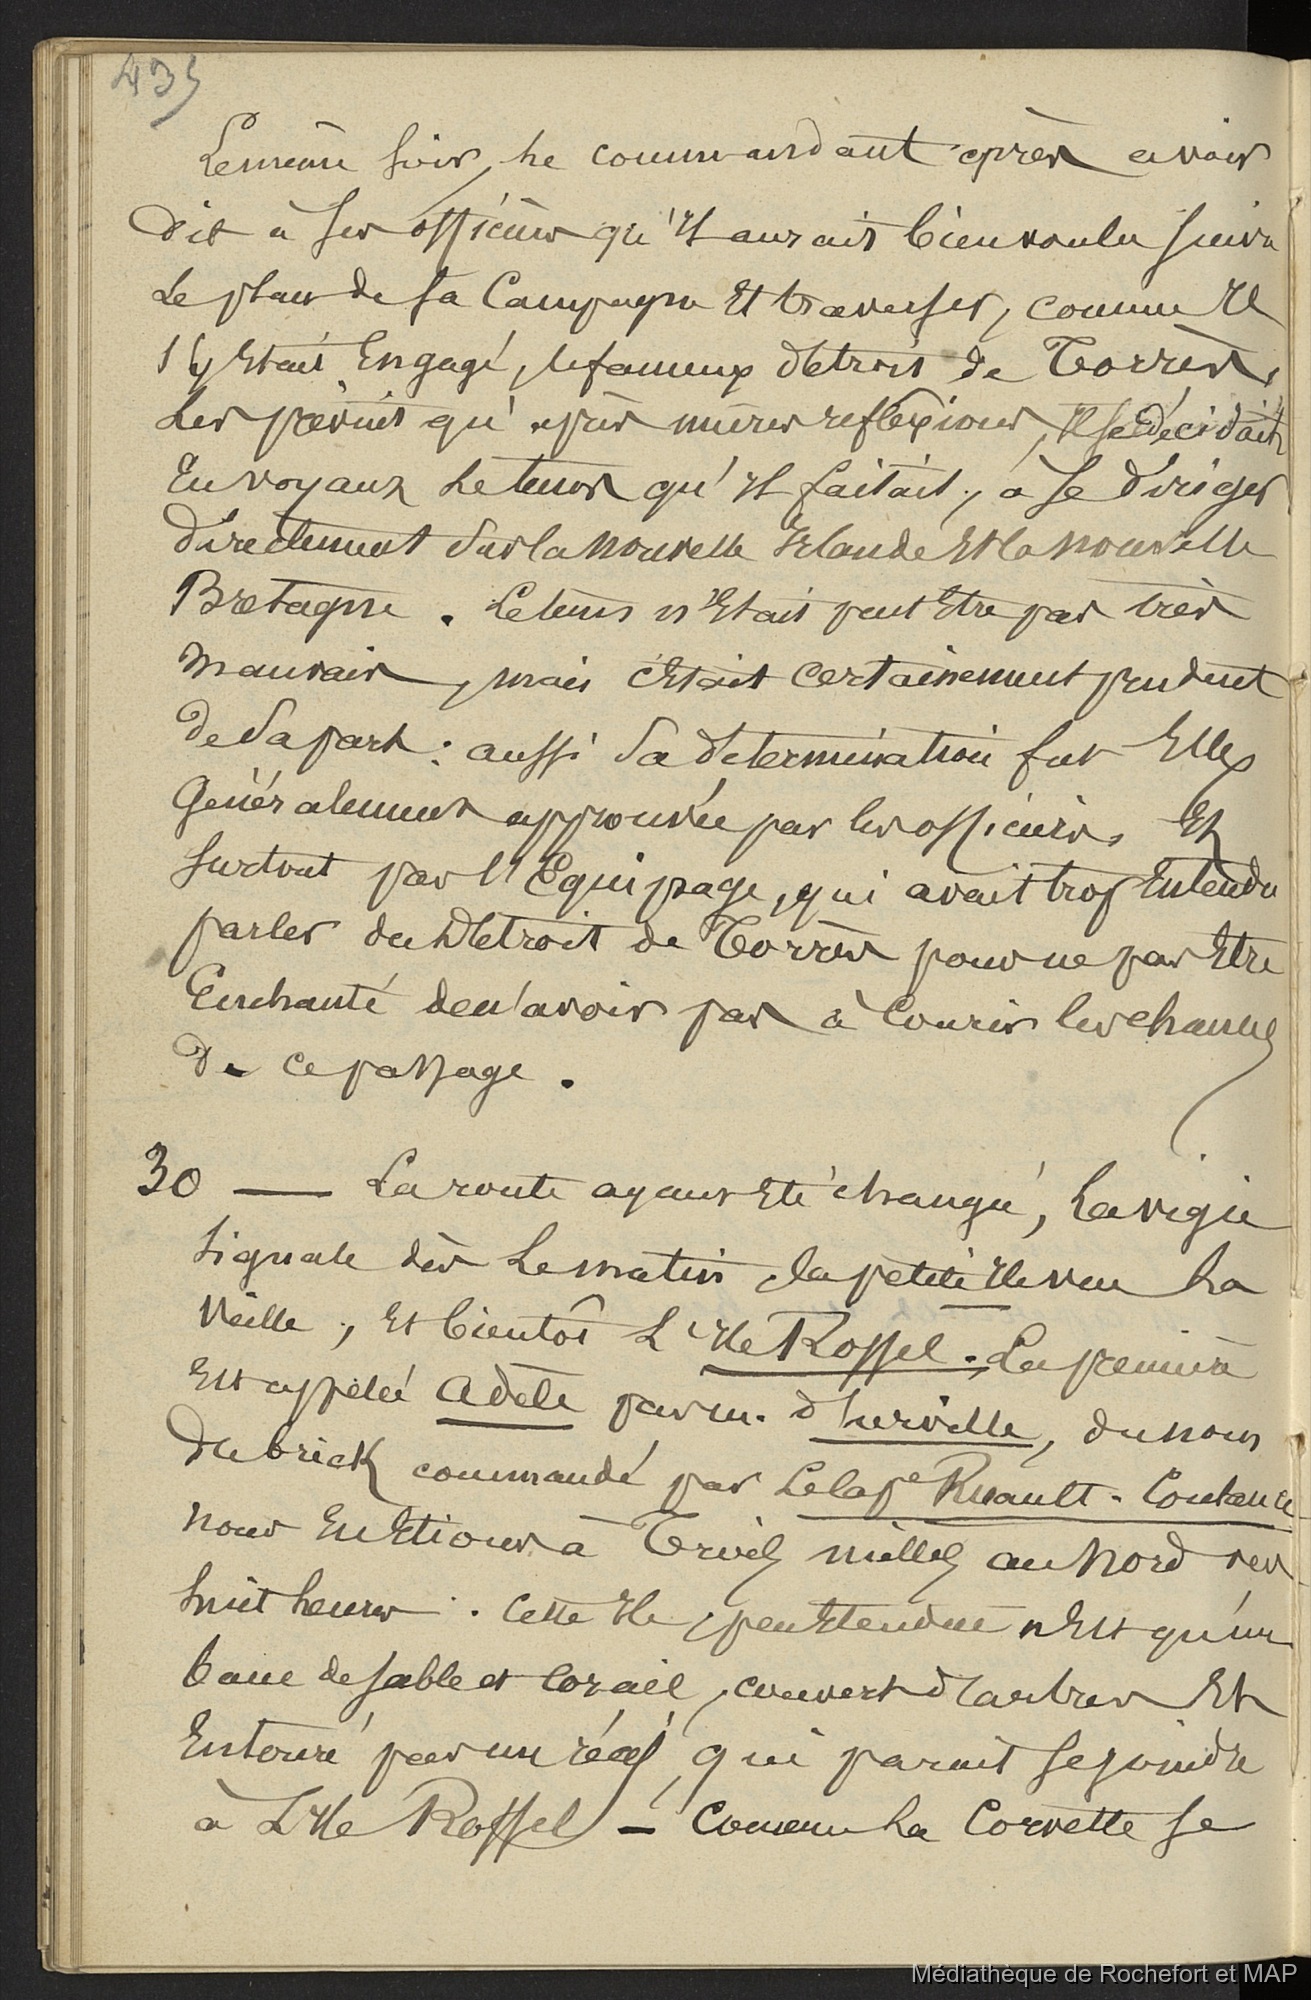 435
Le même soir, le commandant après avoir
dit à ses officiers qu'Il aurait bien voulu suivre
Le plan de sa Campagne Et traverser, comme Il
s'y Etait Engagé, le fameux détroit de Torrès,
Les prévint qu'après mûres reflexions, Il se décidait,
En voyant le tems qu'Il faisait, à se diriger
directement sur la nouvelle Irlande Et la nouvelle
Bretagne. Le tems n'Etait peut Etre pas très
mauvais, mais c'Etait certainement prudent
de sa part : aussi sa détermination fut Elle
Généralement approuvée par les officiers, Et
surtout par l'Equipage, qui avait trop Entendu
parler du Détroit de Torrès pour ne pas Etre
Enchanté de n'avoir pas à courir les chances
de ce passage.
30 — La route ayant Eté changée, La vigie
signale dès Le matin, la petite Ile vue la
Veille, Et bientôt L'Ile Rossel. La première
Est appelée Adèle par m. d'urville, du nom
du brick commandé par Le cap.e Ruault-Coutance
nous En Etions à Trois milles au Nord vers
huit heures. Cette Ile, peu Etendue n'Est qu'un
banc de sable et Corail, couvert d'arbres Et
Entouré par un récif, qui parait se joindre
à L'Ile Rossel — Comme La Corvette se
Médiathèque de Rochefort et MAP